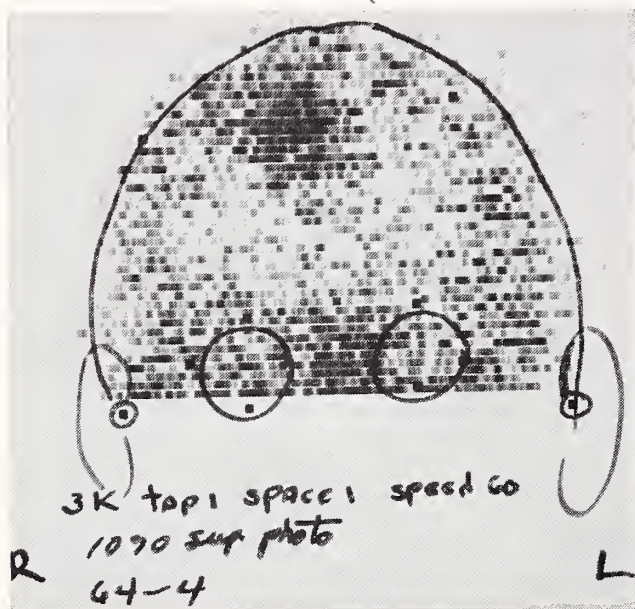 3K tap 1 space 1 speed 60
10% sup photo
R L
64-4